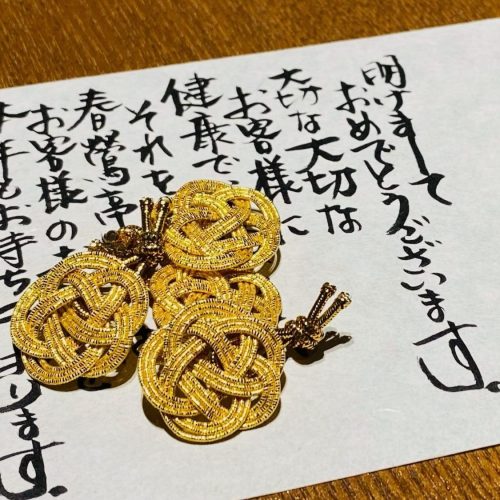 明けまして
おめでとうございます。
大切な大切な
お客様に
健康で
それを
春鶯亭
お客様の
本年もお待ち ります。